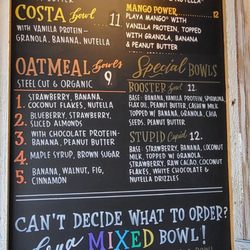 BUTTER
COSTA Bowl 11
WITH VANILLA PROTEIN-
GRANOLA, BANANA, NUTELLA
OATMEAL Bowls
9
STEEL CUT & ORGANIC
1. STRAWBERRY, BANANA,
COCONUT FLAKES, NUTELLA
2. BLUEBERRY, STRAWBERRY,
SLICED ALMONDS
3. WITH CHOCOLATE PROTEIN-
BANANA, PEANUT BUTTER
4. MAPLE SYRUP, BROWN SUGAR
5. BANANA, WALNUT, FIG,
CINNAMON
MANGO POWER
PLAYA MANGO* WITH
VANILLA PROTEIN, TOPPED
WITH GRANOLA, BANANA
& PEANUT BUTTER
Special BOWLS
ROOSTER Bowl 12
BASE: BANANA, VANILLA PROTEIN, SPIRULINA,
FLAX OIL, PEANUT BUTTER, CASHEW MILK.
TOPPED W/ BANANA, GRANOLA, CHIA
SEEDS, PEANUT BUTTER
STUPID Cupid 12.
BASE: STRAWBERRY, BANANA, COCONUT
MILK, TOPPED W/ GRANOLA,
STRAWBERRY, RAW CACAO, COCONUT
FLAKES, WHITE CHOCOLATE &
NUTELLA DRIZZLES
CAN'T DECIDE WHAT TO ORDER?
MIXED BOWL!